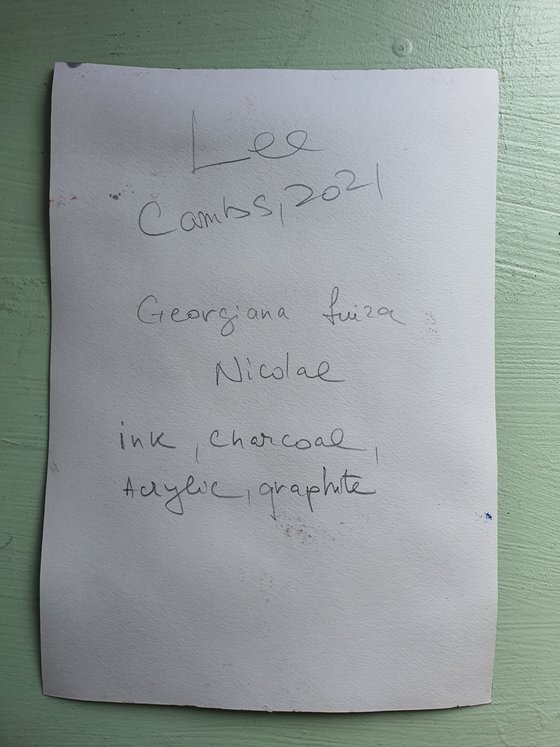 Lee
Cambs, 2021
Georgiana Luiza
Nicolae
ink, charcoal,
Acrylic, graphite